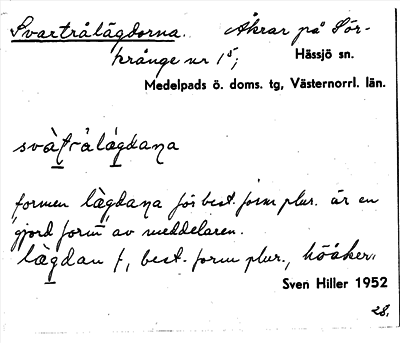 Svartrålägdorna. Åkrar på Sör-
krånge nr 1⁵;
Hässjö sn.
Medelpads ö. doms. tg, Västernorrl. län.
svàţrålág̱daṉa
formen làgdaṉa för best. form plur. är en
"gjord form" av meddelaren.
làg̱dan f, best. form plur., höåker.
Sven Hiller 1952
28.